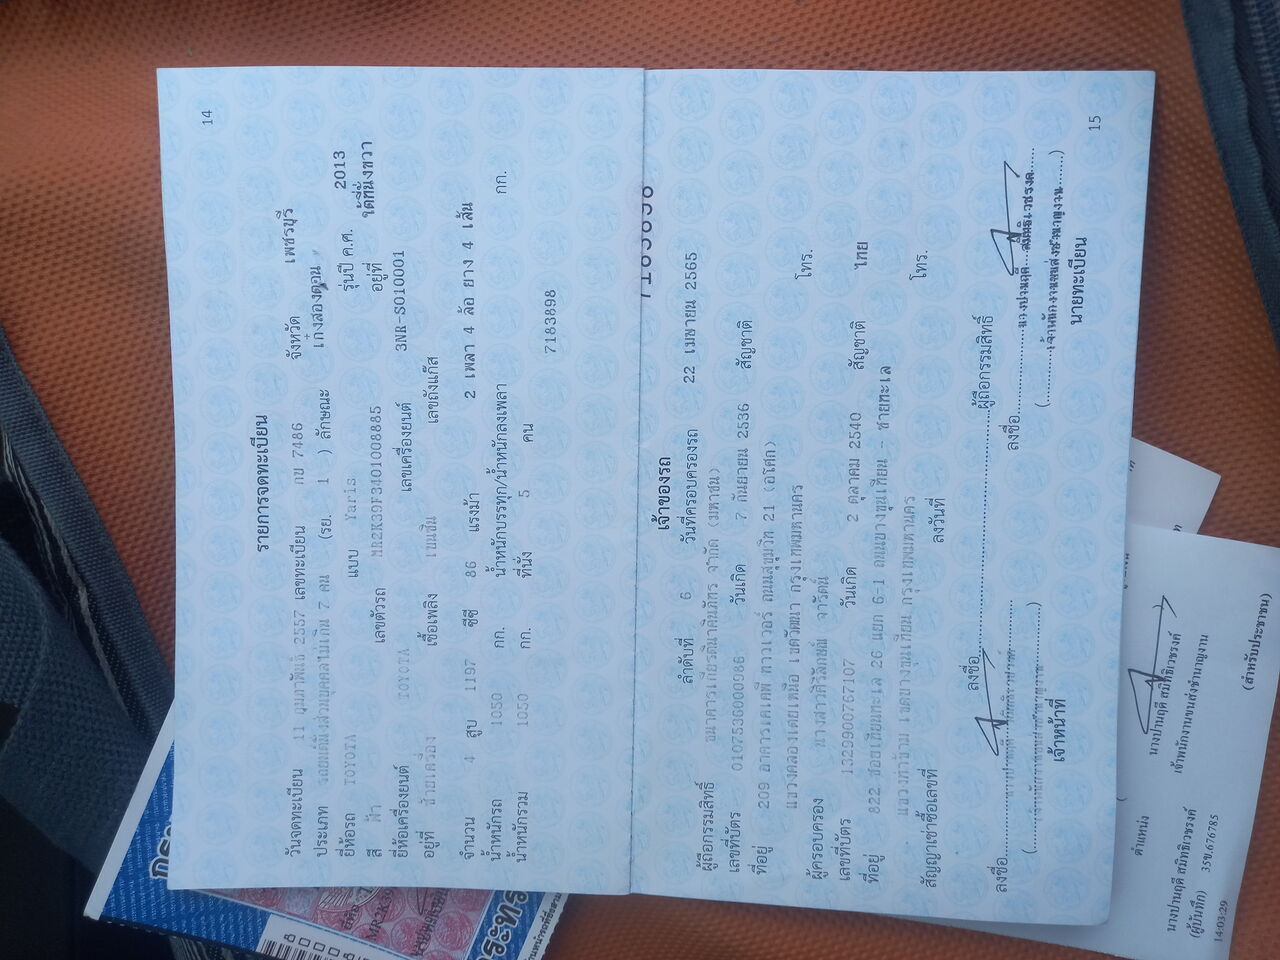 14
รายการจดทะเบียน
วันจดทะเบียน 11 กุมภาพันธ์ 2557 เลขทะเบียน กบ 7486 จังหวัด เพชรบุรี
ประเภท รถยนต์นั่งส่วนบุคคลไม่เกิน 7 คน (รย. 1 ) ลักษณะ เก๋งสองตอน
ยี่ห้อรถ TOYOTA แบบ Yaris รุ่นปี ค.ศ. 2013
สี ฟ้า เลขตัวรถ MR2K39F3401008885 อยู่ที่ ใต้ที่นั่งขวา
ยี่ห้อเครื่องยนต์ TOYOTA เลขเครื่องยนต์ 3NR-S010001
อยู่ที่ ซ้ายเครื่อง เชื้อเพลิง เบนซิน เลขถังแก๊ส
จำนวน 4 สูบ 1197 ซีซี 86 แรงม้า 2 เพลา 4 ล้อ ยาง 4 เส้น
น้ำหนักรถ 1050 กก. น้ำหนักบรรทุก/น้ำหนักลงเพลา กก.
น้ำหนักรวม 1050 กก. ที่นั่ง 5 คน
7183898
7183898
เจ้าของรถ
ลำดับที่ 6 วันที่ครอบครองรถ 22 เมษายน 2565
ผู้ถือกรรมสิทธิ์ ธนาคารเกียรตินาคินภัทร จำกัด (มหาชน)
เลขที่บัตร 0107536000986 วันเกิด 7 กันยายน 2536 สัญชาติ
ที่อยู่ 209 อาคารเคเคพี ทาวเวอร์ ถนนสุขุมวิท 21 (อโศก)
แขวงคลองเตยเหนือ เขตวัฒนา กรุงเทพมหานคร โทร.
ผู้ครอบครอง นางสาวศิริลักษณ์ จารัตน์
เลขที่บัตร 1329900757107 วันเกิด 2 ตุลาคม 2540 สัญชาติ ไทย
ที่อยู่ 822 ซอยเทียนทะเล 26 แยก 6-1 ถนนบางขุนเทียน - ชายทะเล
แขวงท่าข้าม เขตบางขุนเทียน กรุงเทพมหานคร โทร.
สัญญาเช่าซื้อเลขที่ ลงวันที่
ลงชื่อ ผู้ถือกรรมสิทธิ์
ลงชื่อ
ลงชื่อ
เจ้าหน้าที่
นายทะเบียน
15
ตำแหน่ง
นางปานฤดี สมิทธิเวชรงค์
เจ้าพนักงานขนส่งชำนาญงาน
นางปานฤดี สมิทธิเวชรงค์
(ผู้บันทึก) 35ข.676785
14:03:29
(สำหรับประชาชน)